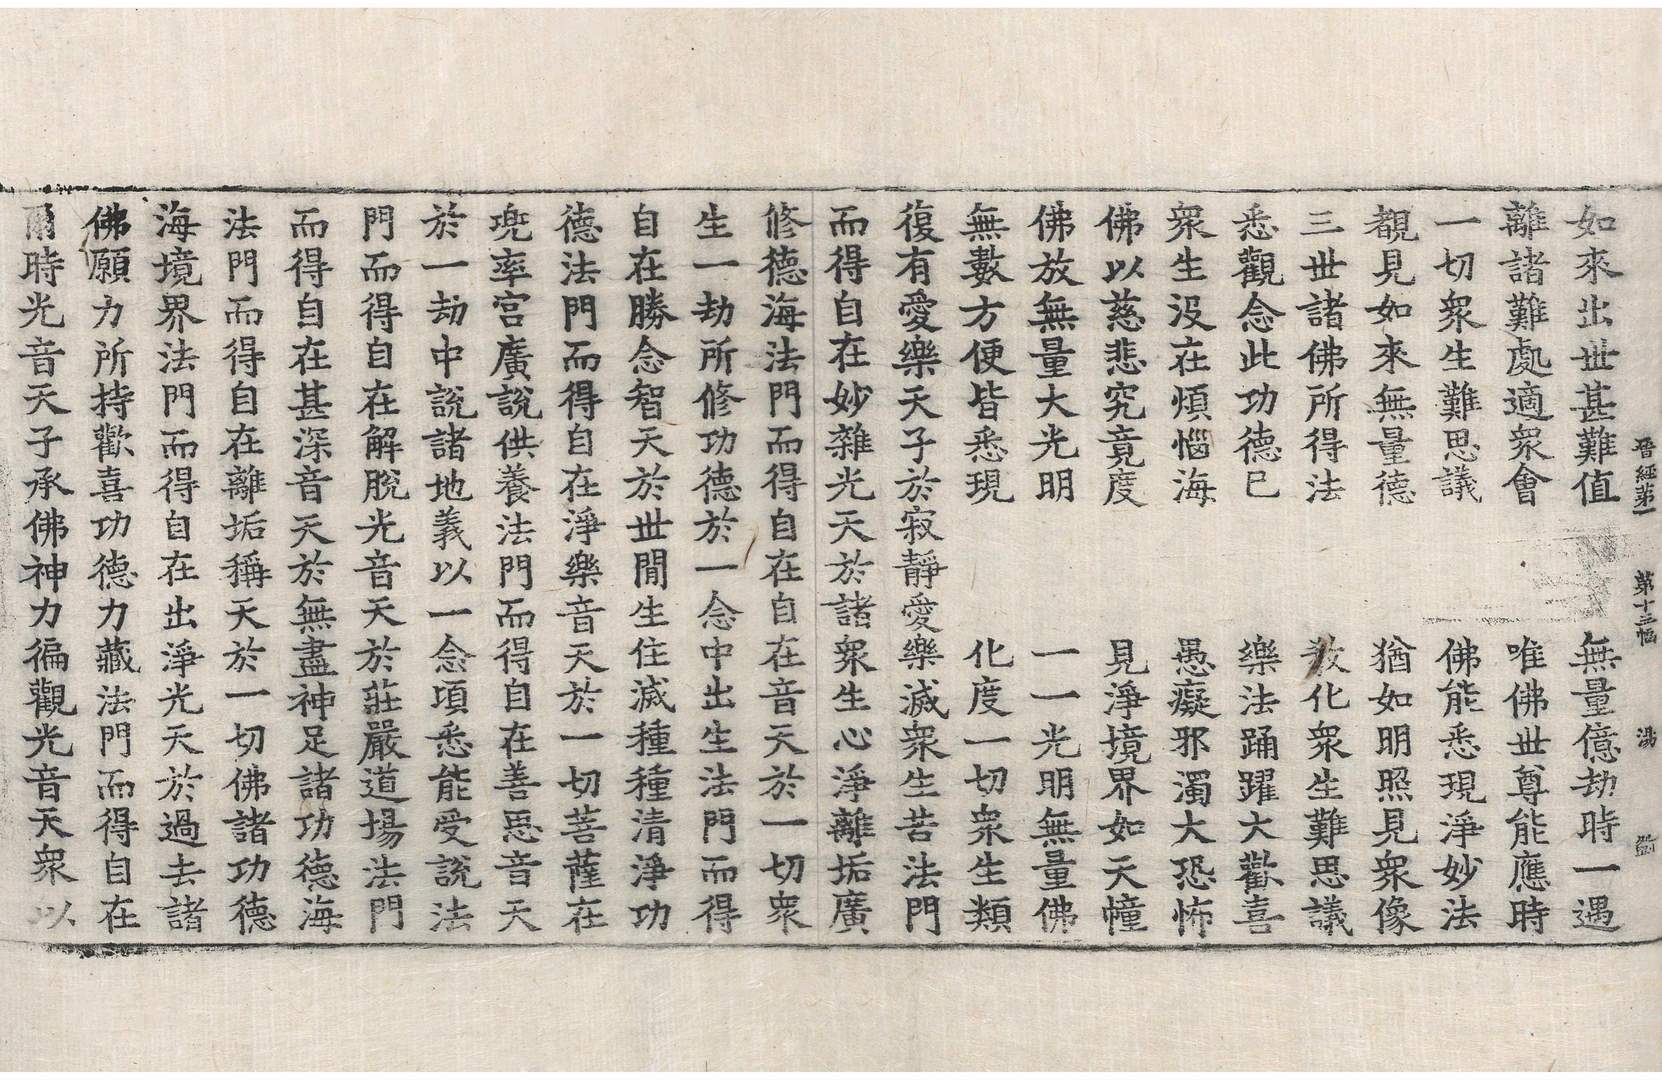 晋經第一 第十三幅 湯
如來出世甚難值 無量億劫時一遇
離諸難處適衆會 唯佛世尊能應時
一切衆生難思議 佛能悉現淨妙法
覩見如來無量德 猶如明照見衆像
三世諸佛所得法 教化衆生難思議
悉觀念此功德已 樂法踊躍大歡喜
衆生没在煩惱海 愚癡邪濁大恐怖
佛以慈悲究竟度 見淨境界如天幢
佛放無量大光明 一一光明無量佛
無數方便皆悉現 化度一切衆生類
復有愛樂天子於寂靜愛樂滅衆生苦法門
而得自在妙雜光天於諸衆生心淨離垢廣
修德海法門而得自在自在音天於一切衆
生一劫所修功德於一念中出生法門而得
自在勝念智天於世間生住滅種種清淨功
德法門而得自在淨樂音天於一切菩薩在
兜率宮廣說供養法門而得自在善思音天
於一劫中說諸地義以一念頃悉能受說法
門而得自在解脫光音天於莊嚴道場法門
而得自在甚深音天於無盡神足諸功德海
法門而得自在離垢稱天於一切佛諸功德
海境界法門而得自在出淨光天於過去諸
佛願力所持歡喜功德力藏法門而得自在
爾時光音天子承佛神力徧觀光音天衆以